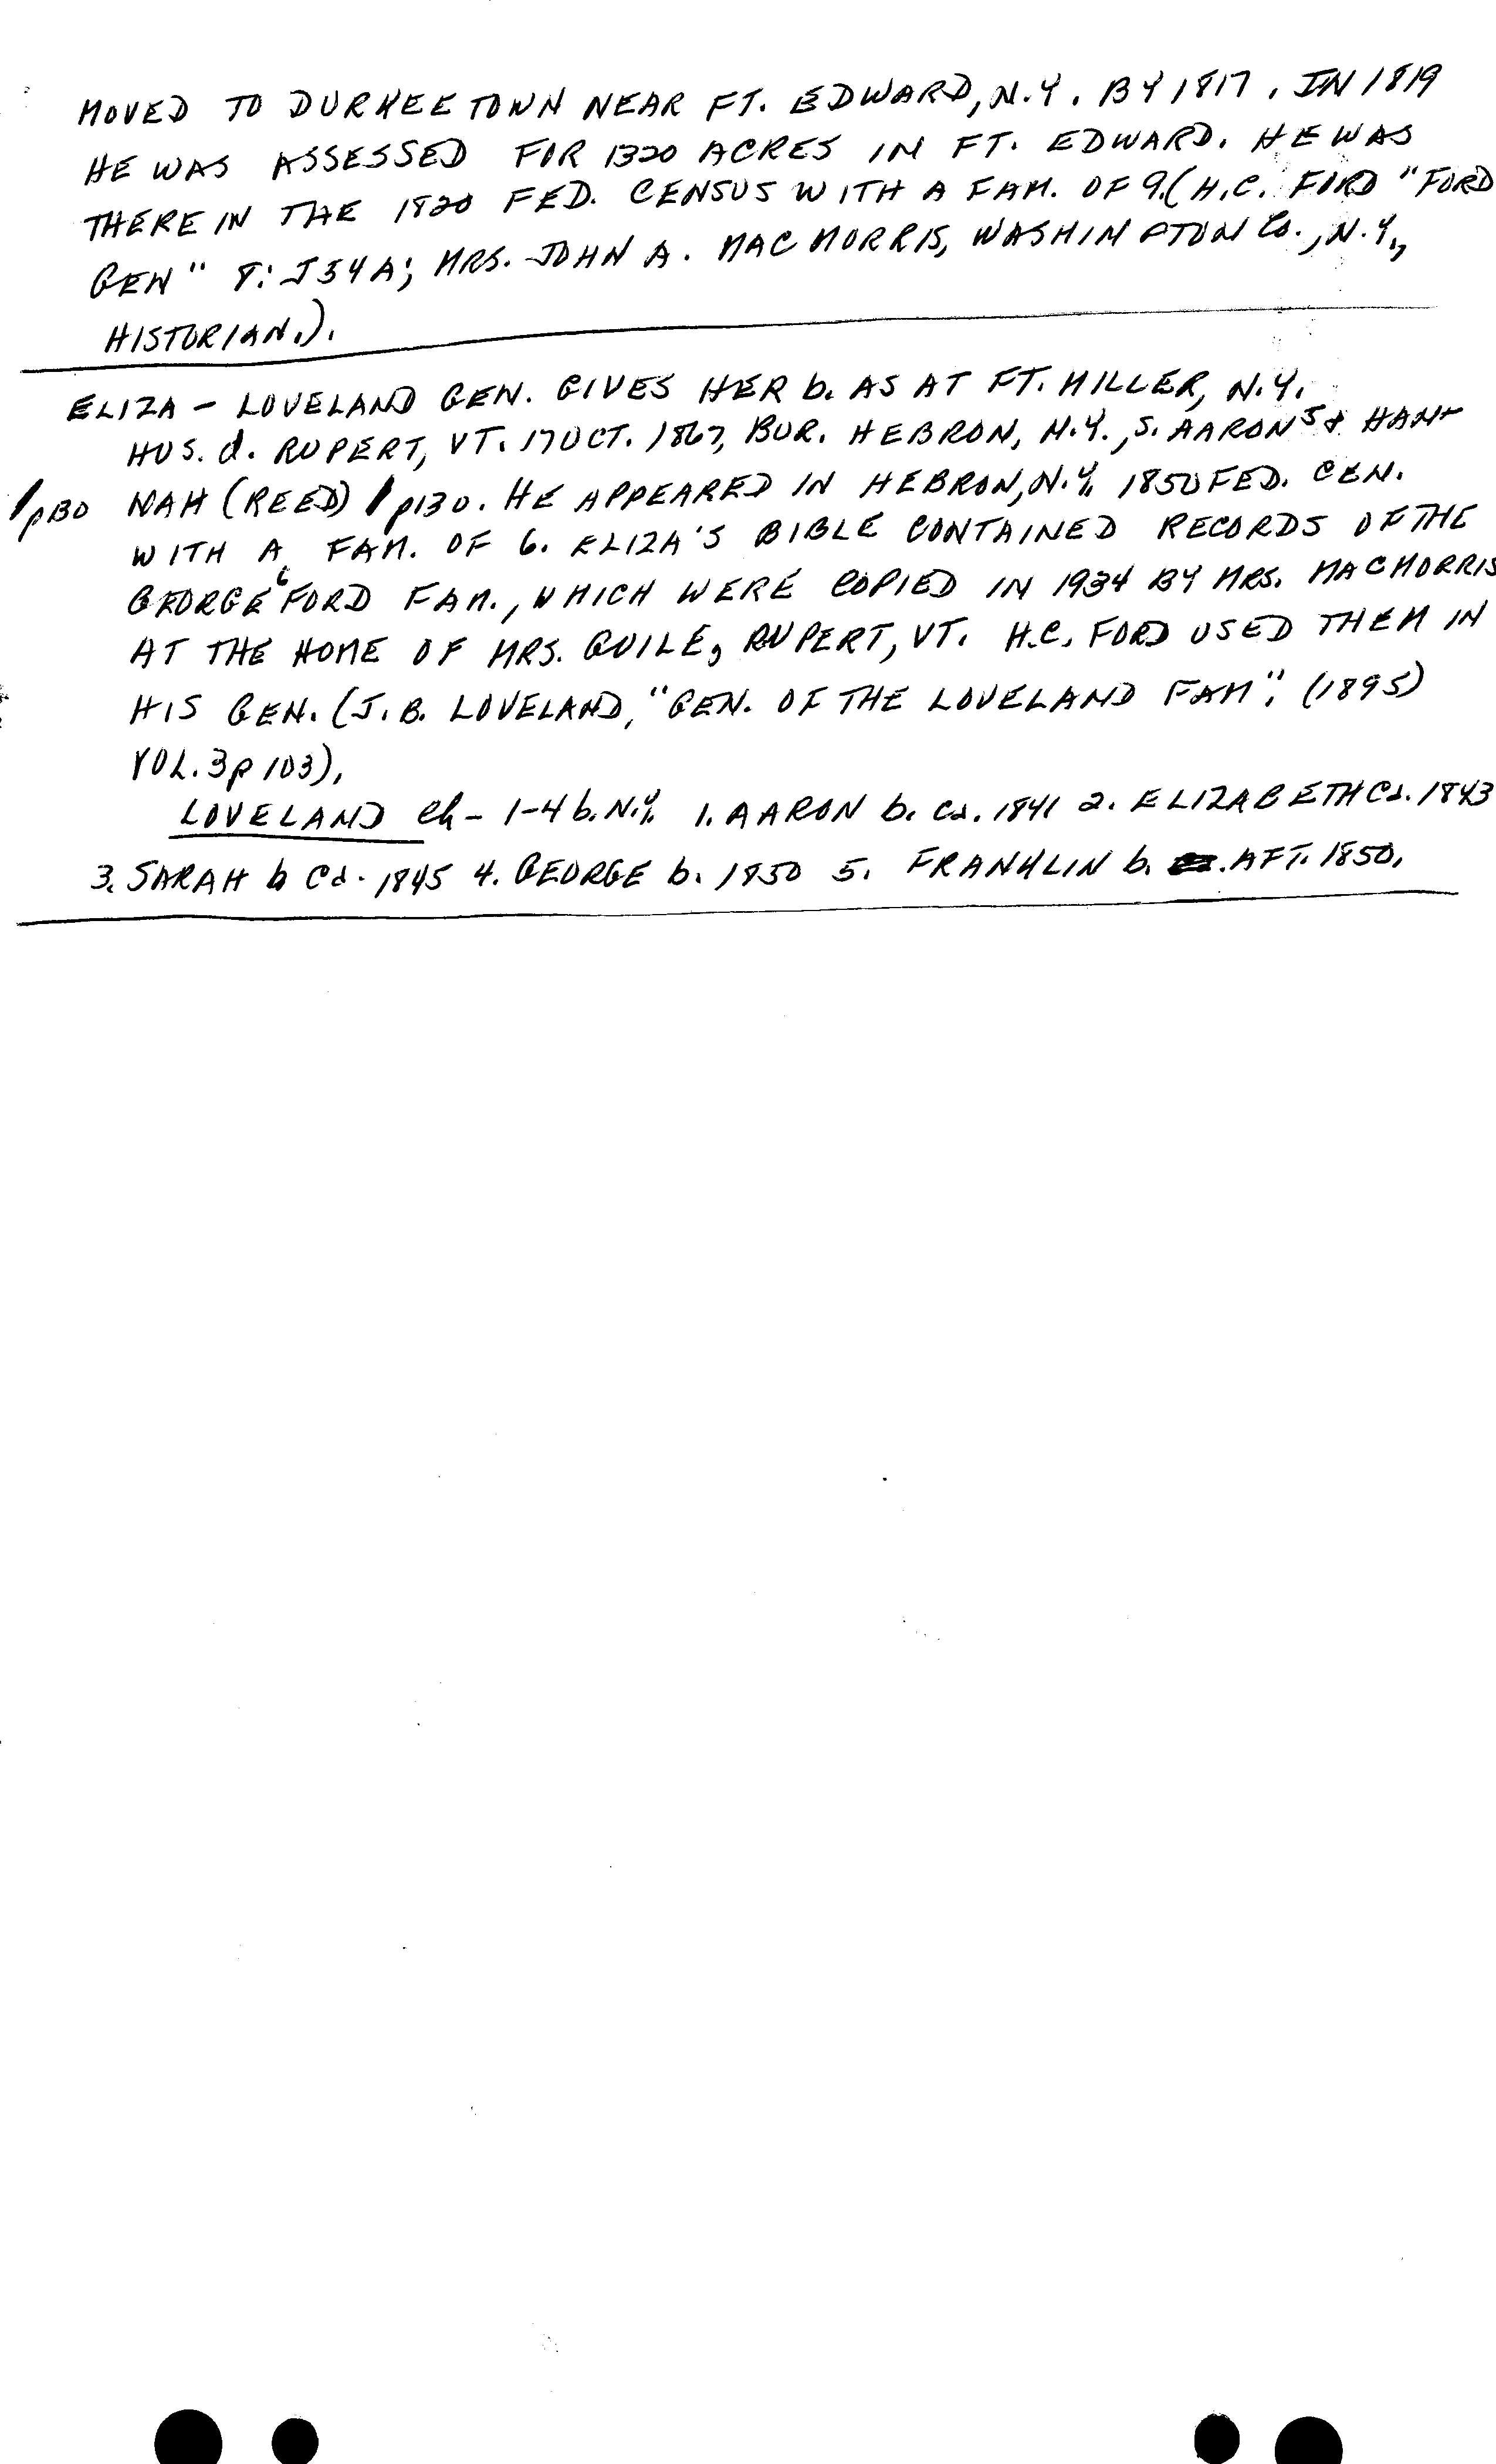 MOVED TO DURKEETOWN NEAR FT. EDWARD, N.Y. BY 1817. IN 1819
HE WAS ASSESSED FOR 1320 ACRES IN FT. EDWARD. HE WAS
THERE IN THE 1820 FED. CENSUS WITH A FAM. OF 9. (H.C. FORD "FORD
GEN" 8: J34A; MRS. JOHN A. MACMORRIS, WASHINGTON Co., N.Y.,
HISTORIAN.).
ELIZA - LOVELAND GEN. GIVES HER b. AS AT FT. MILLER, N.Y.
HUS. d. RUPERT, VT. 17 OCT. 1867, BUR. HEBRON, N.Y., S. AARON5 & HAN-
/p130 NAH (REED) / p130. HE APPEARED IN HEBRON, N.Y. 1850 FED. CEN.
WITH A FAM. OF 6. ELIZA'S BIBLE CONTAINED RECORDS OF THE
GEORGE6 FORD FAM., WHICH WERE COPIED IN 1934 BY MRS. MACMORRIS
AT THE HOME OF MRS. GUILE, RUPERT, VT. H.C. FORD USED THEM IN
HIS GEN. (J.B. LOVELAND, "GEN. OF THE LOVELAND FAM". (1895)
VOL. 3 p 103).
LOVELAND Ch - 1-4 b. N.Y. 1. AARON b. Ca. 1841 2. ELIZABETH Ca. 1843
3. SARAH b Ca. 1845 4. GEORGE b. 1850 5. FRANKLIN b. AFT. 1850.